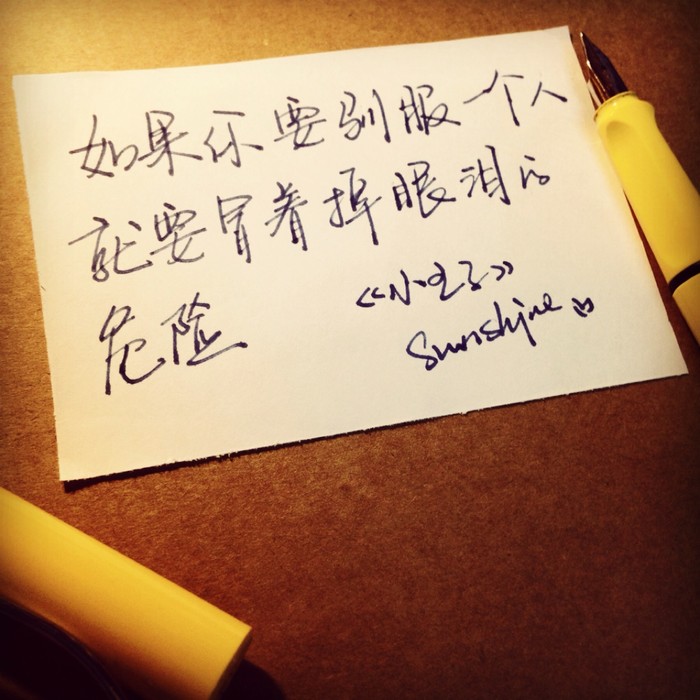 如果你要驯服一个人
就要冒着掉眼泪的
危险
《小王子》
Sunshine ♡